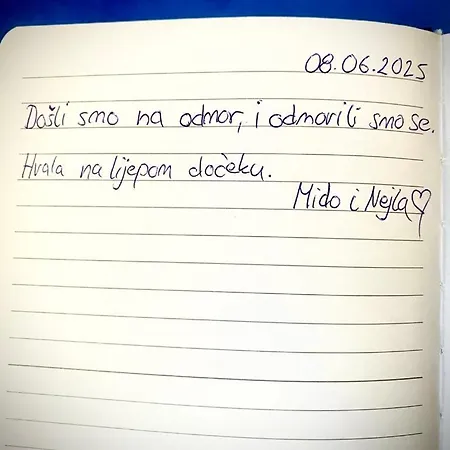 08.06.2025
Došli smo na odmor, i odmorili smo se.
Hvala na lijepom dočeku.
Mido i Nejla♡